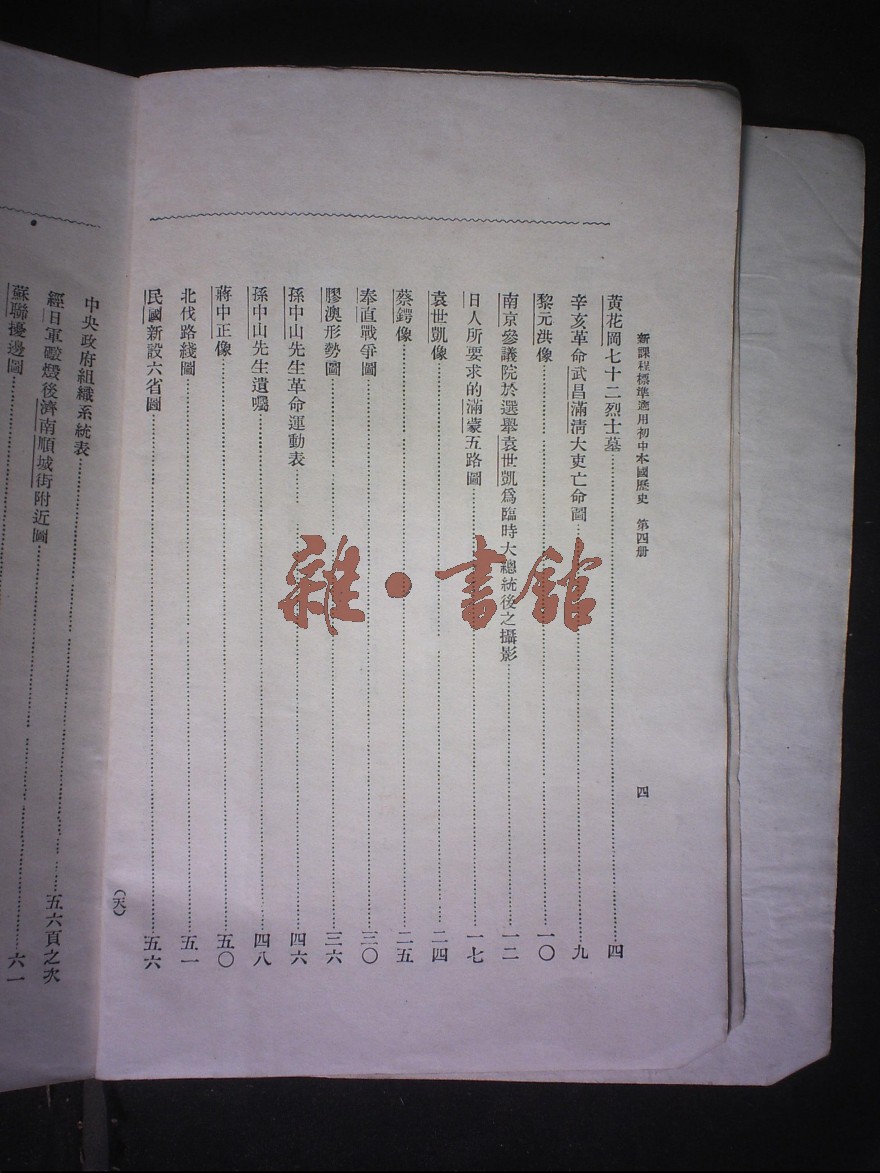 新課程標準適用初中本國歷史　第四册
四
黃花岡七十二烈士墓……四
辛亥革命武昌滿清大吏亡命圖……九
黎元洪像……一〇
南京參議院於選舉袁世凱爲臨時大總統後之攝影……一二
日人所要求的滿蒙五路圖……一七
袁世凱像……二四
蔡鍔像……二五
奉直戰爭圖……三〇
膠澳形勢圖……三六
孫中山先生革命運動表……四六
孫中山先生遺囑……四八
蔣中正像……五〇
北伐路綫圖……五一
民國新設六省圖……五六
（天）
中央政府組織系統表……五六頁之次
經日軍礮燬後濟南順城街附近圖……
蘇聯擾邊圖……六一
雜·書館